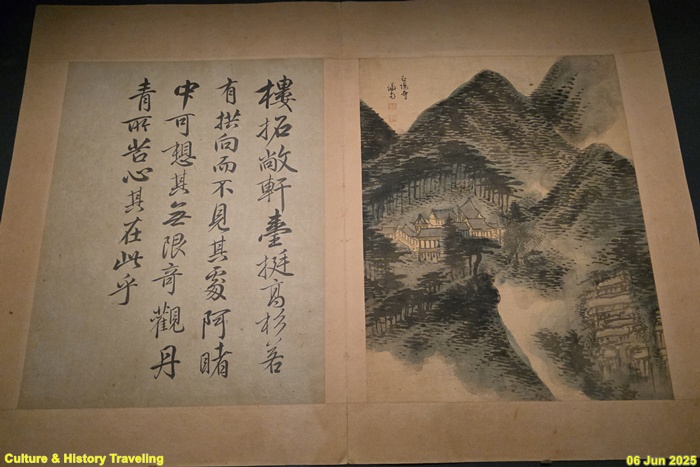 樓拓敞軒臺挺高杉若
有拱向而不見其處阿睹
中可想其無限奇觀丹
青所苦心其在此乎
Culture & History Traveling
06 Jun 2025